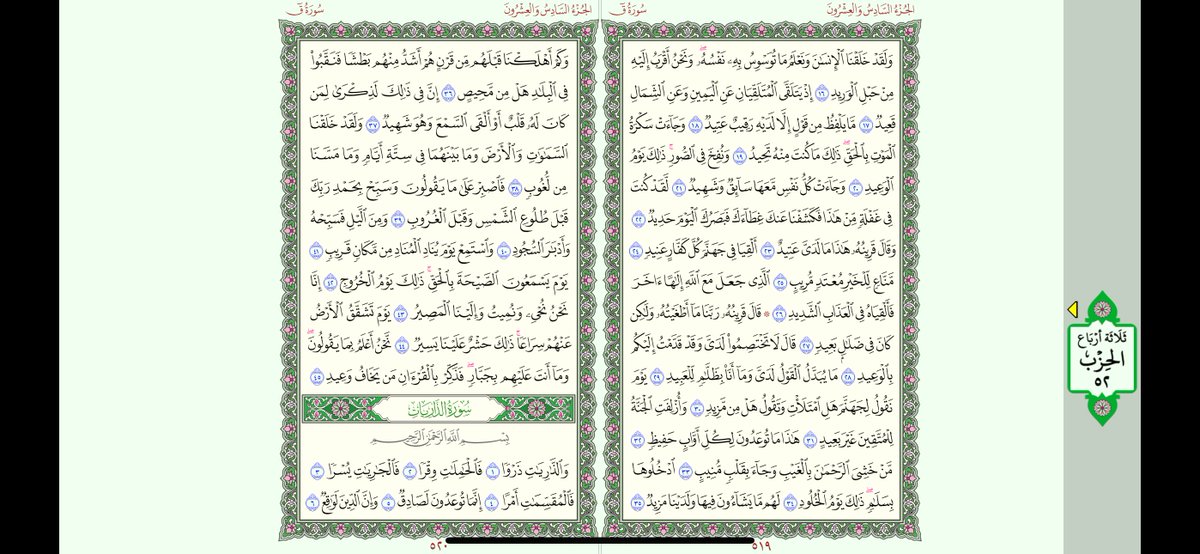 الجُزْءُ السَّادِسُ وَالعِشْرُونَ
سُورَةُ قٓ
وَلَقَدْ خَلَقْنَا ٱلْإِنسَٰنَ وَنَعْلَمُ مَا تُوَسْوِسُ بِهِۦ نَفْسُهُۥۖ وَنَحْنُ أَقْرَبُ إِلَيْهِ
مِنْ حَبْلِ ٱلْوَرِيدِ ١٦ إِذْ يَتَلَقَّى ٱلْمُتَلَقِّيَانِ عَنِ ٱلْيَمِينِ وَعَنِ ٱلشِّمَالِ
قَعِيدٌ ١٧ مَّا يَلْفِظُ مِن قَوْلٍ إِلَّا لَدَيْهِ رَقِيبٌ عَتِيدٌ ١٨ وَجَآءَتْ سَكْرَةُ
ٱلْمَوْتِ بِٱلْحَقِّۖ ذَٰلِكَ مَا كُنتَ مِنْهُ تَحِيدُ ١٩ وَنُفِخَ فِى ٱلصُّورِۚ ذَٰلِكَ يَوْمُ
ٱلْوَعِيدِ ٢٠ وَجَآءَتْ كُلُّ نَفْسٍ مَّعَهَا سَآئِقٌ وَشَهِيدٌ ٢١ لَّقَدْ كُنتَ
فِى غَفْلَةٍ مِّنْ هَٰذَا فَكَشَفْنَا عَنكَ غِطَآءَكَ فَبَصَرُكَ ٱلْيَوْمَ حَدِيدٌ ٢٢
وَقَالَ قَرِينُهُۥ هَٰذَا مَا لَدَىَّ عَتِيدٌ ٢٣ أَلْقِيَا فِى جَهَنَّمَ كُلَّ كَفَّارٍ عَنِيدٍ ٢٤
مَّنَّاعٍ لِّلْخَيْرِ مُعْتَدٍ مُّرِيبٍ ٢٥ ٱلَّذِى جَعَلَ مَعَ ٱللَّهِ إِلَٰهًا ءَاخَرَ
فَأَلْقِيَاهُ فِى ٱلْعَذَابِ ٱلشَّدِيدِ ٢٦ ۞ قَالَ قَرِينُهُۥ رَبَّنَا مَآ أَطْغَيْتُهُۥ وَلَٰكِن
كَانَ فِى ضَلَٰلٍۭ بَعِيدٍ ٢٧ قَالَ لَا تَخْتَصِمُوا۟ لَدَىَّ وَقَدْ قَدَّمْتُ إِلَيْكُم
بِٱلْوَعِيدِ ٢٨ مَا يُبَدَّلُ ٱلْقَوْلُ لَدَىَّ وَمَآ أَنَا۠ بِظَلَّٰمٍ لِّلْعَبِيدِ ٢٩ يَوْمَ
نَقُولُ لِجَهَنَّمَ هَلِ ٱمْتَلَأْتِ وَتَقُولُ هَلْ مِن مَّزِيدٍ ٣٠ وَأُزْلِفَتِ ٱلْجَنَّةُ
لِلْمُتَّقِينَ غَيْرَ بَعِيدٍ ٣١ هَٰذَا مَا تُوعَدُونَ لِكُلِّ أَوَّابٍ حَفِيظٍ ٣٢
مَّنْ خَشِىَ ٱلرَّحْمَٰنَ بِٱلْغَيْبِ وَجَآءَ بِقَلْبٍ مُّنِيبٍ ٣٣ ٱدْخُلُوهَا
بِسَلَٰمٍۖ ذَٰلِكَ يَوْمُ ٱلْخُلُودِ ٣٤ لَهُم مَّا يَشَآءُونَ فِيهَا وَلَدَيْنَا مَزِيدٌ ٣٥
٥١٩
الجُزْءُ السَّادِسُ وَالعِشْرُونَ
سُورَةُ قٓ
وَكَمْ أَهْلَكْنَا قَبْلَهُم مِّن قَرْنٍ هُمْ أَشَدُّ مِنْهُم بَطْشًا فَنَقَّبُوا۟
فِى ٱلْبِلَٰدِ هَلْ مِن مَّحِيصٍ ٣٦ إِنَّ فِى ذَٰلِكَ لَذِكْرَىٰ لِمَن
كَانَ لَهُۥ قَلْبٌ أَوْ أَلْقَى ٱلسَّمْعَ وَهُوَ شَهِيدٌ ٣٧ وَلَقَدْ خَلَقْنَا
ٱلسَّمَٰوَٰتِ وَٱلْأَرْضَ وَمَا بَيْنَهُمَا فِى سِتَّةِ أَيَّامٍ وَمَا مَسَّنَا
مِن لُّغُوبٍ ٣٨ فَٱصْبِرْ عَلَىٰ مَا يَقُولُونَ وَسَبِّحْ بِحَمْدِ رَبِّكَ
قَبْلَ طُلُوعِ ٱلشَّمْسِ وَقَبْلَ ٱلْغُرُوبِ ٣٩ وَمِنَ ٱلَّيْلِ فَسَبِّحْهُ
وَأَدْبَٰرَ ٱلسُّجُودِ ٤٠ وَٱسْتَمِعْ يَوْمَ يُنَادِ ٱلْمُنَادِ مِن مَّكَانٍ قَرِيبٍ ٤١
يَوْمَ يَسْمَعُونَ ٱلصَّيْحَةَ بِٱلْحَقِّۚ ذَٰلِكَ يَوْمُ ٱلْخُرُوجِ ٤٢ إِنَّا
نَحْنُ نُحْىِۦ وَنُمِيتُ وَإِلَيْنَا ٱلْمَصِيرُ ٤٣ يَوْمَ تَشَقَّقُ ٱلْأَرْضُ
عَنْهُمْ سِرَاعًاۚ ذَٰلِكَ حَشْرٌ عَلَيْنَا يَسِيرٌ ٤٤ نَّحْنُ أَعْلَمُ بِمَا يَقُولُونَۖ
وَمَآ أَنتَ عَلَيْهِم بِجَبَّارٍۖ فَذَكِّرْ بِٱلْقُرْءَانِ مَن يَخَافُ وَعِيدِ ٤٥
سُورَةُ الذَّارِيَاتِ
بِسْمِ ٱللَّهِ ٱلرَّحْمَٰنِ ٱلرَّحِيمِ
وَٱلذَّٰرِيَٰتِ ذَرْوًا ١ فَٱلْحَٰمِلَٰتِ وِقْرًا ٢ فَٱلْجَٰرِيَٰتِ يُسْرًا ٣
فَٱلْمُقَسِّمَٰتِ أَمْرًا ٤ إِنَّمَا تُوعَدُونَ لَصَادِقٌ ٥ وَإِنَّ ٱلدِّينَ لَوَٰقِعٌ ٦
٥٢٠
ثَلَاثَةُ أَرْبَاعِ
الحِزْب
٥٢